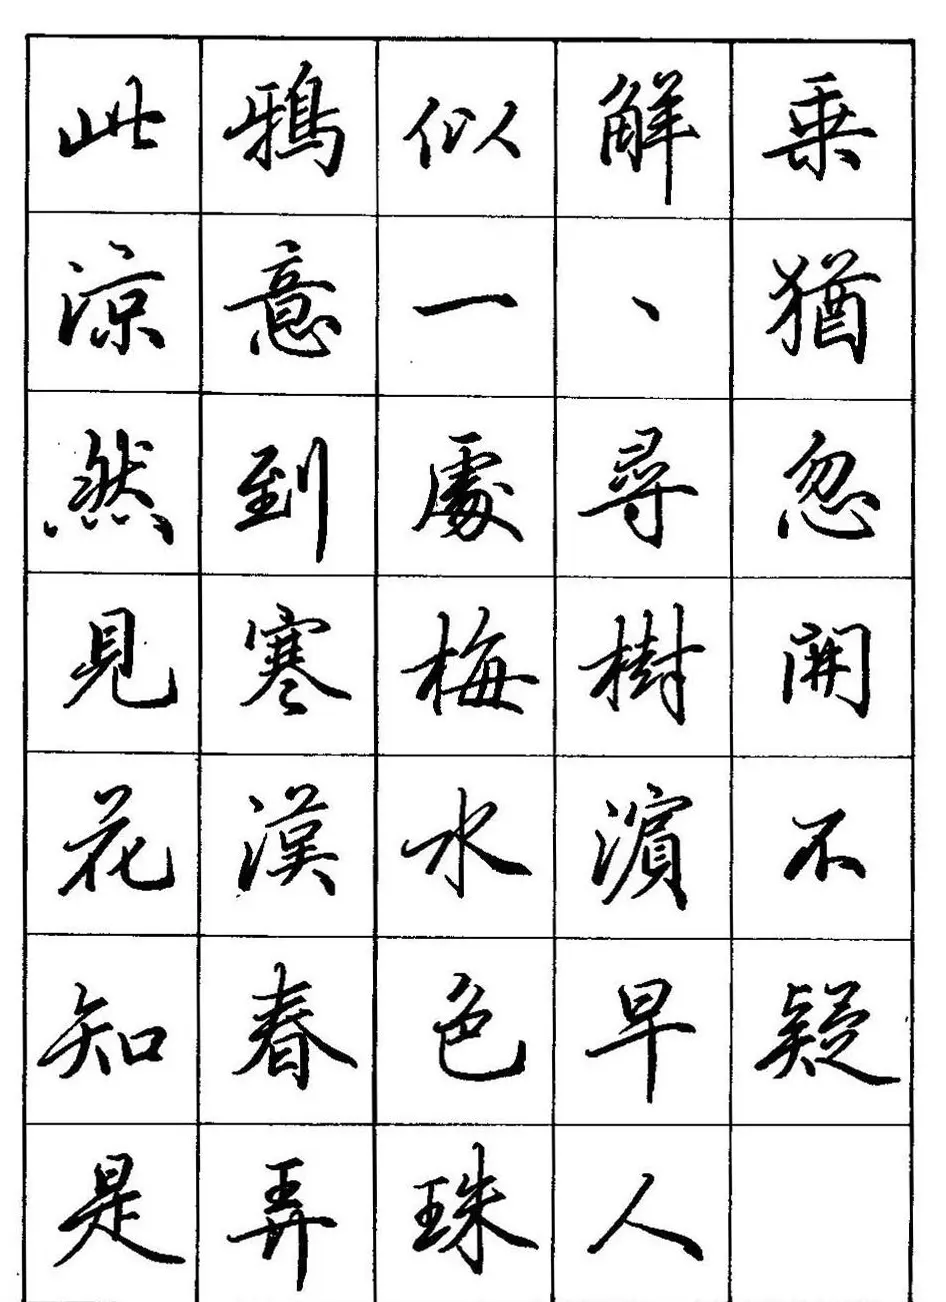 此鴉似解乘
涼意一、猶
然到處尋忽
見寒梅樹開
花漢水濱不
知春色早疑
是弄珠人